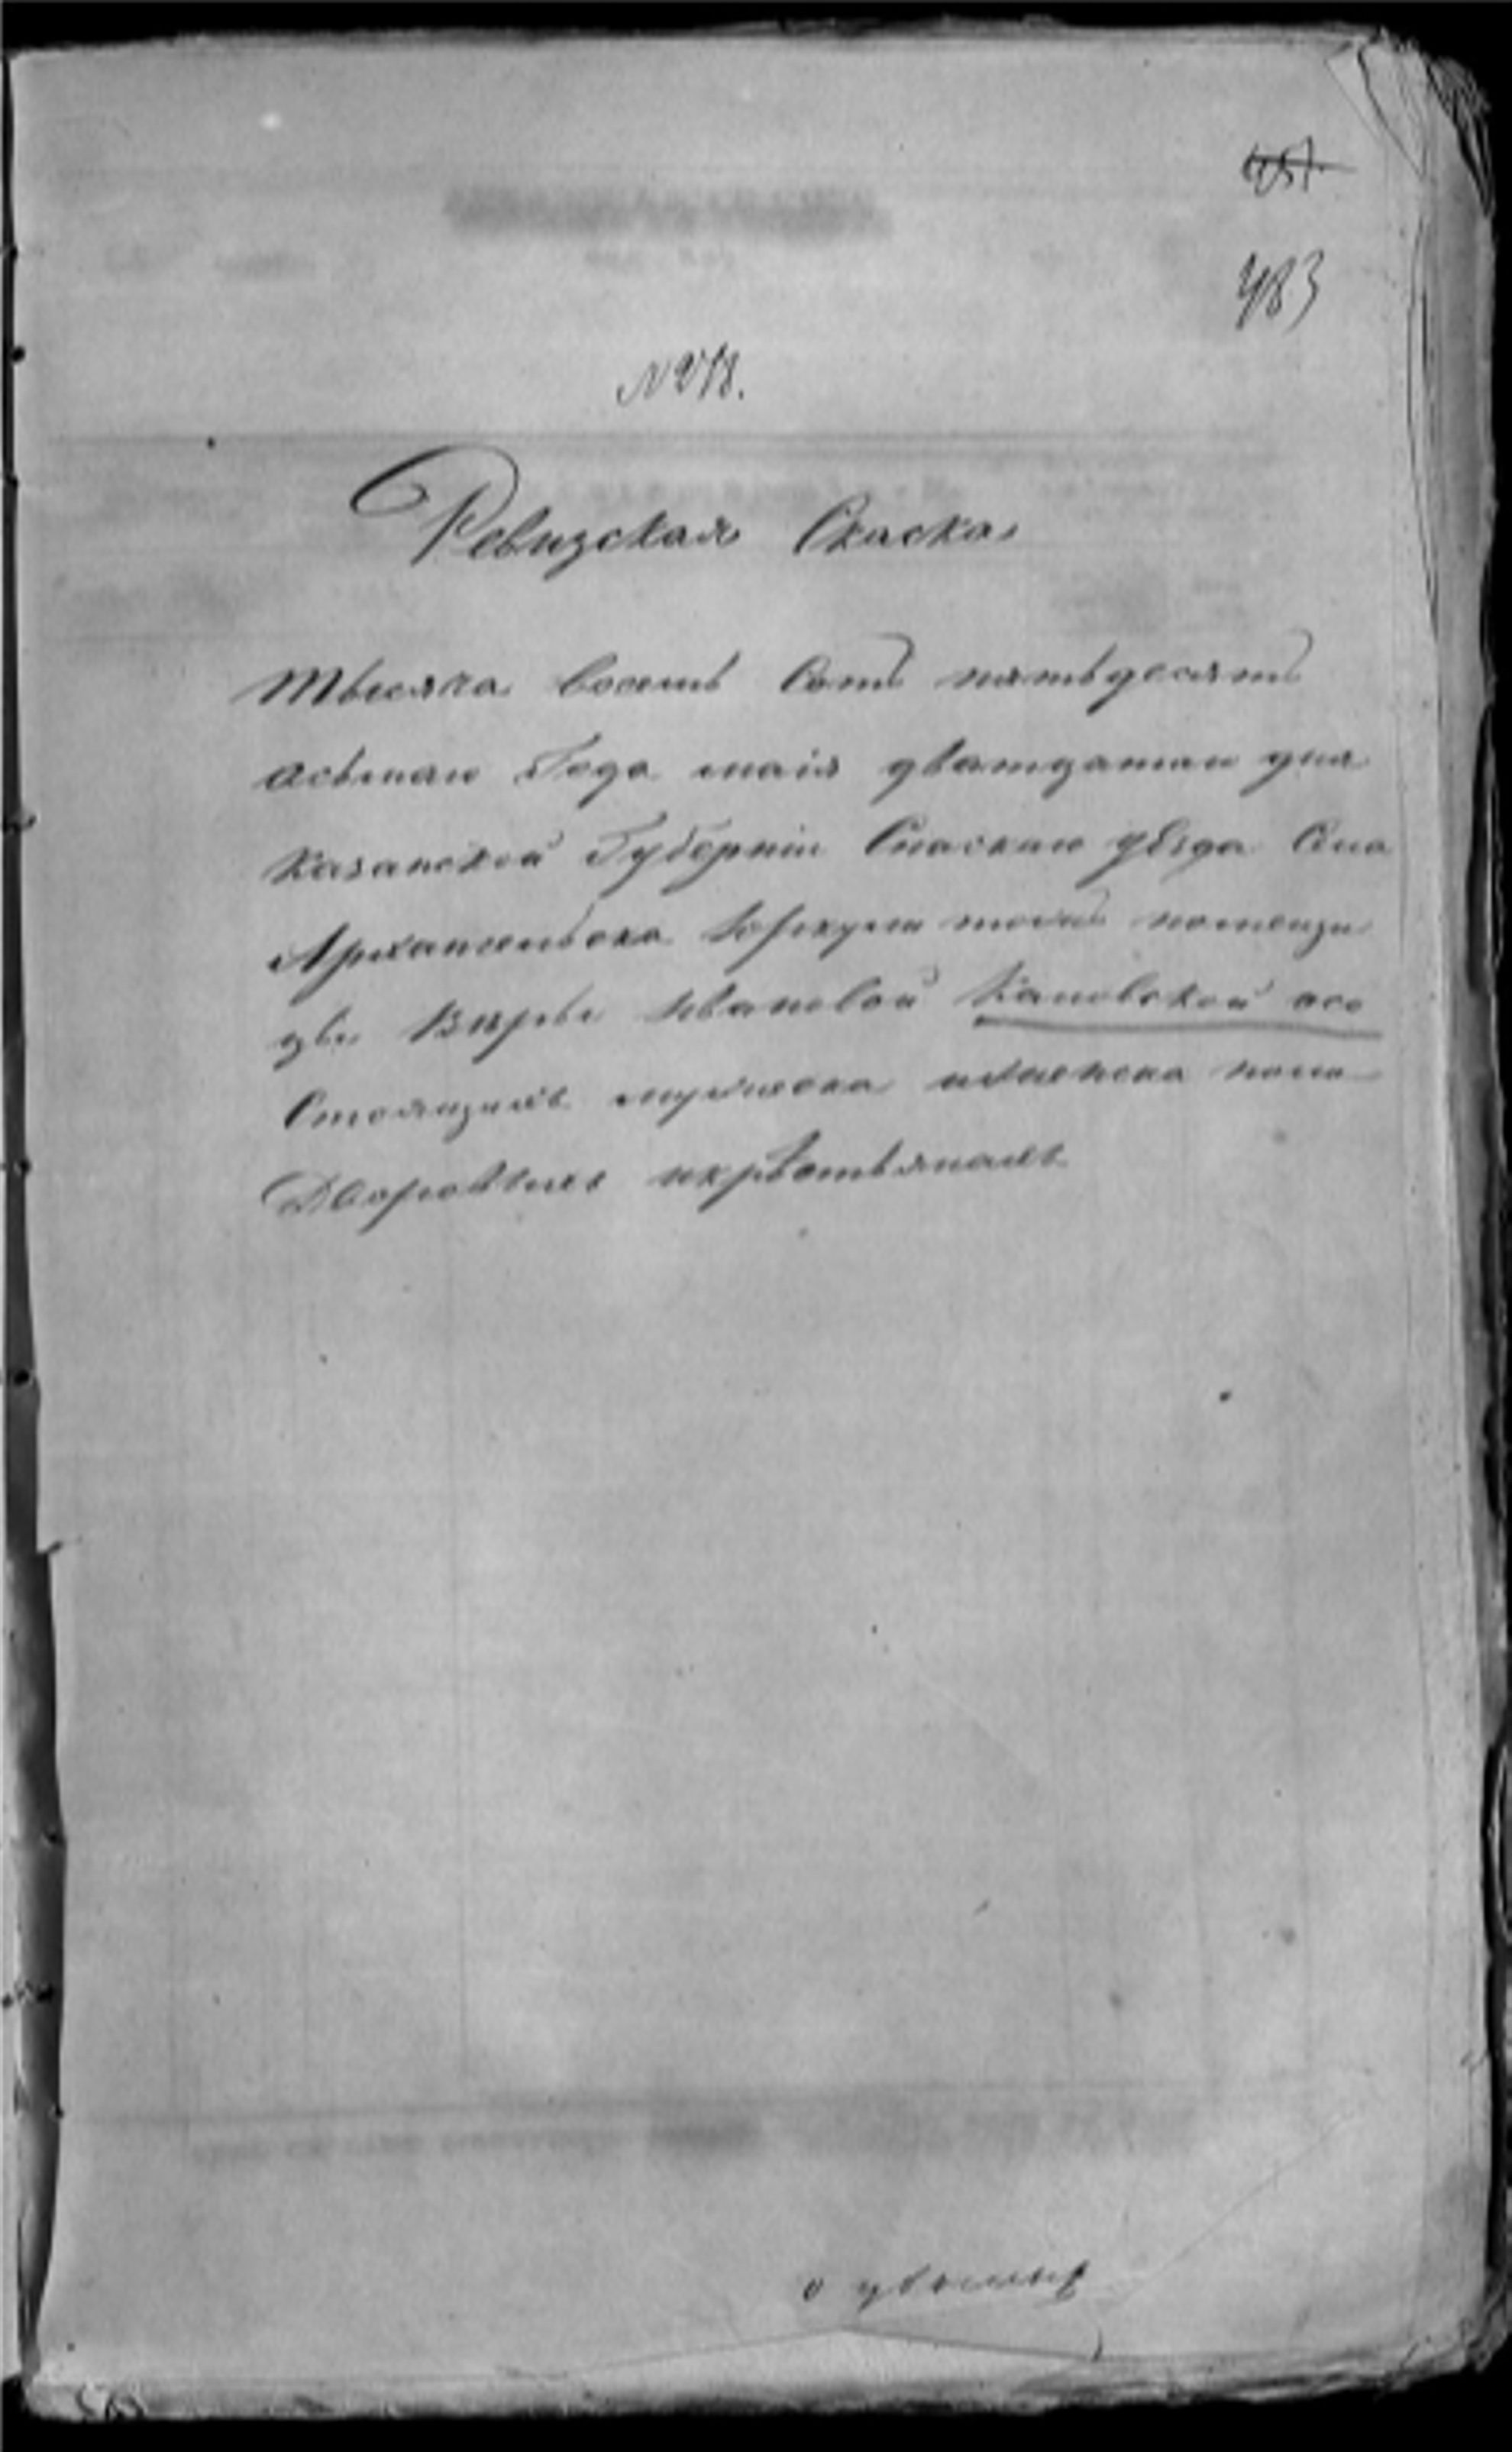 483
№ 218.
Ревизская Скаска
Тысяча восемь Сотъ пятьдесятъ
асьмаго Года маія дватцатаго дня
Казанской Губерніи Спаскаго уѣзда Села
Архангельска
Варвы Ивановой Кановской осо
Стоящихъ мужеска иженска пола
Дворовыхъ икрѣстьянахъ